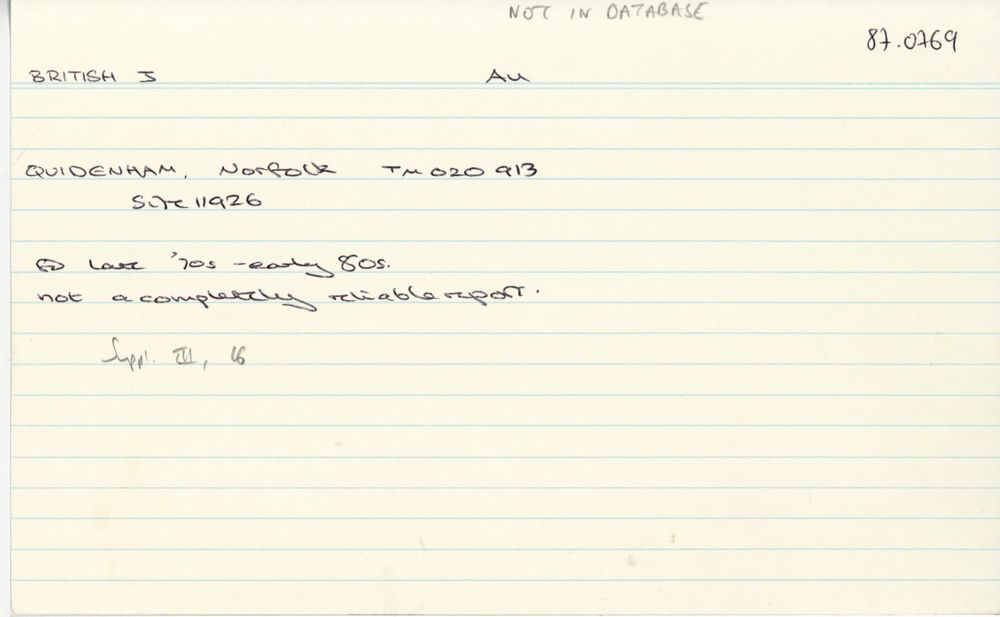 NOT IN DATABASE
87.0769
BRITISH J Au
QUIDENHAM, Norfolk TM 020 913
Site 11926
late '70s - early 80s.
not a completely reliable report.
Suppl. III, 16